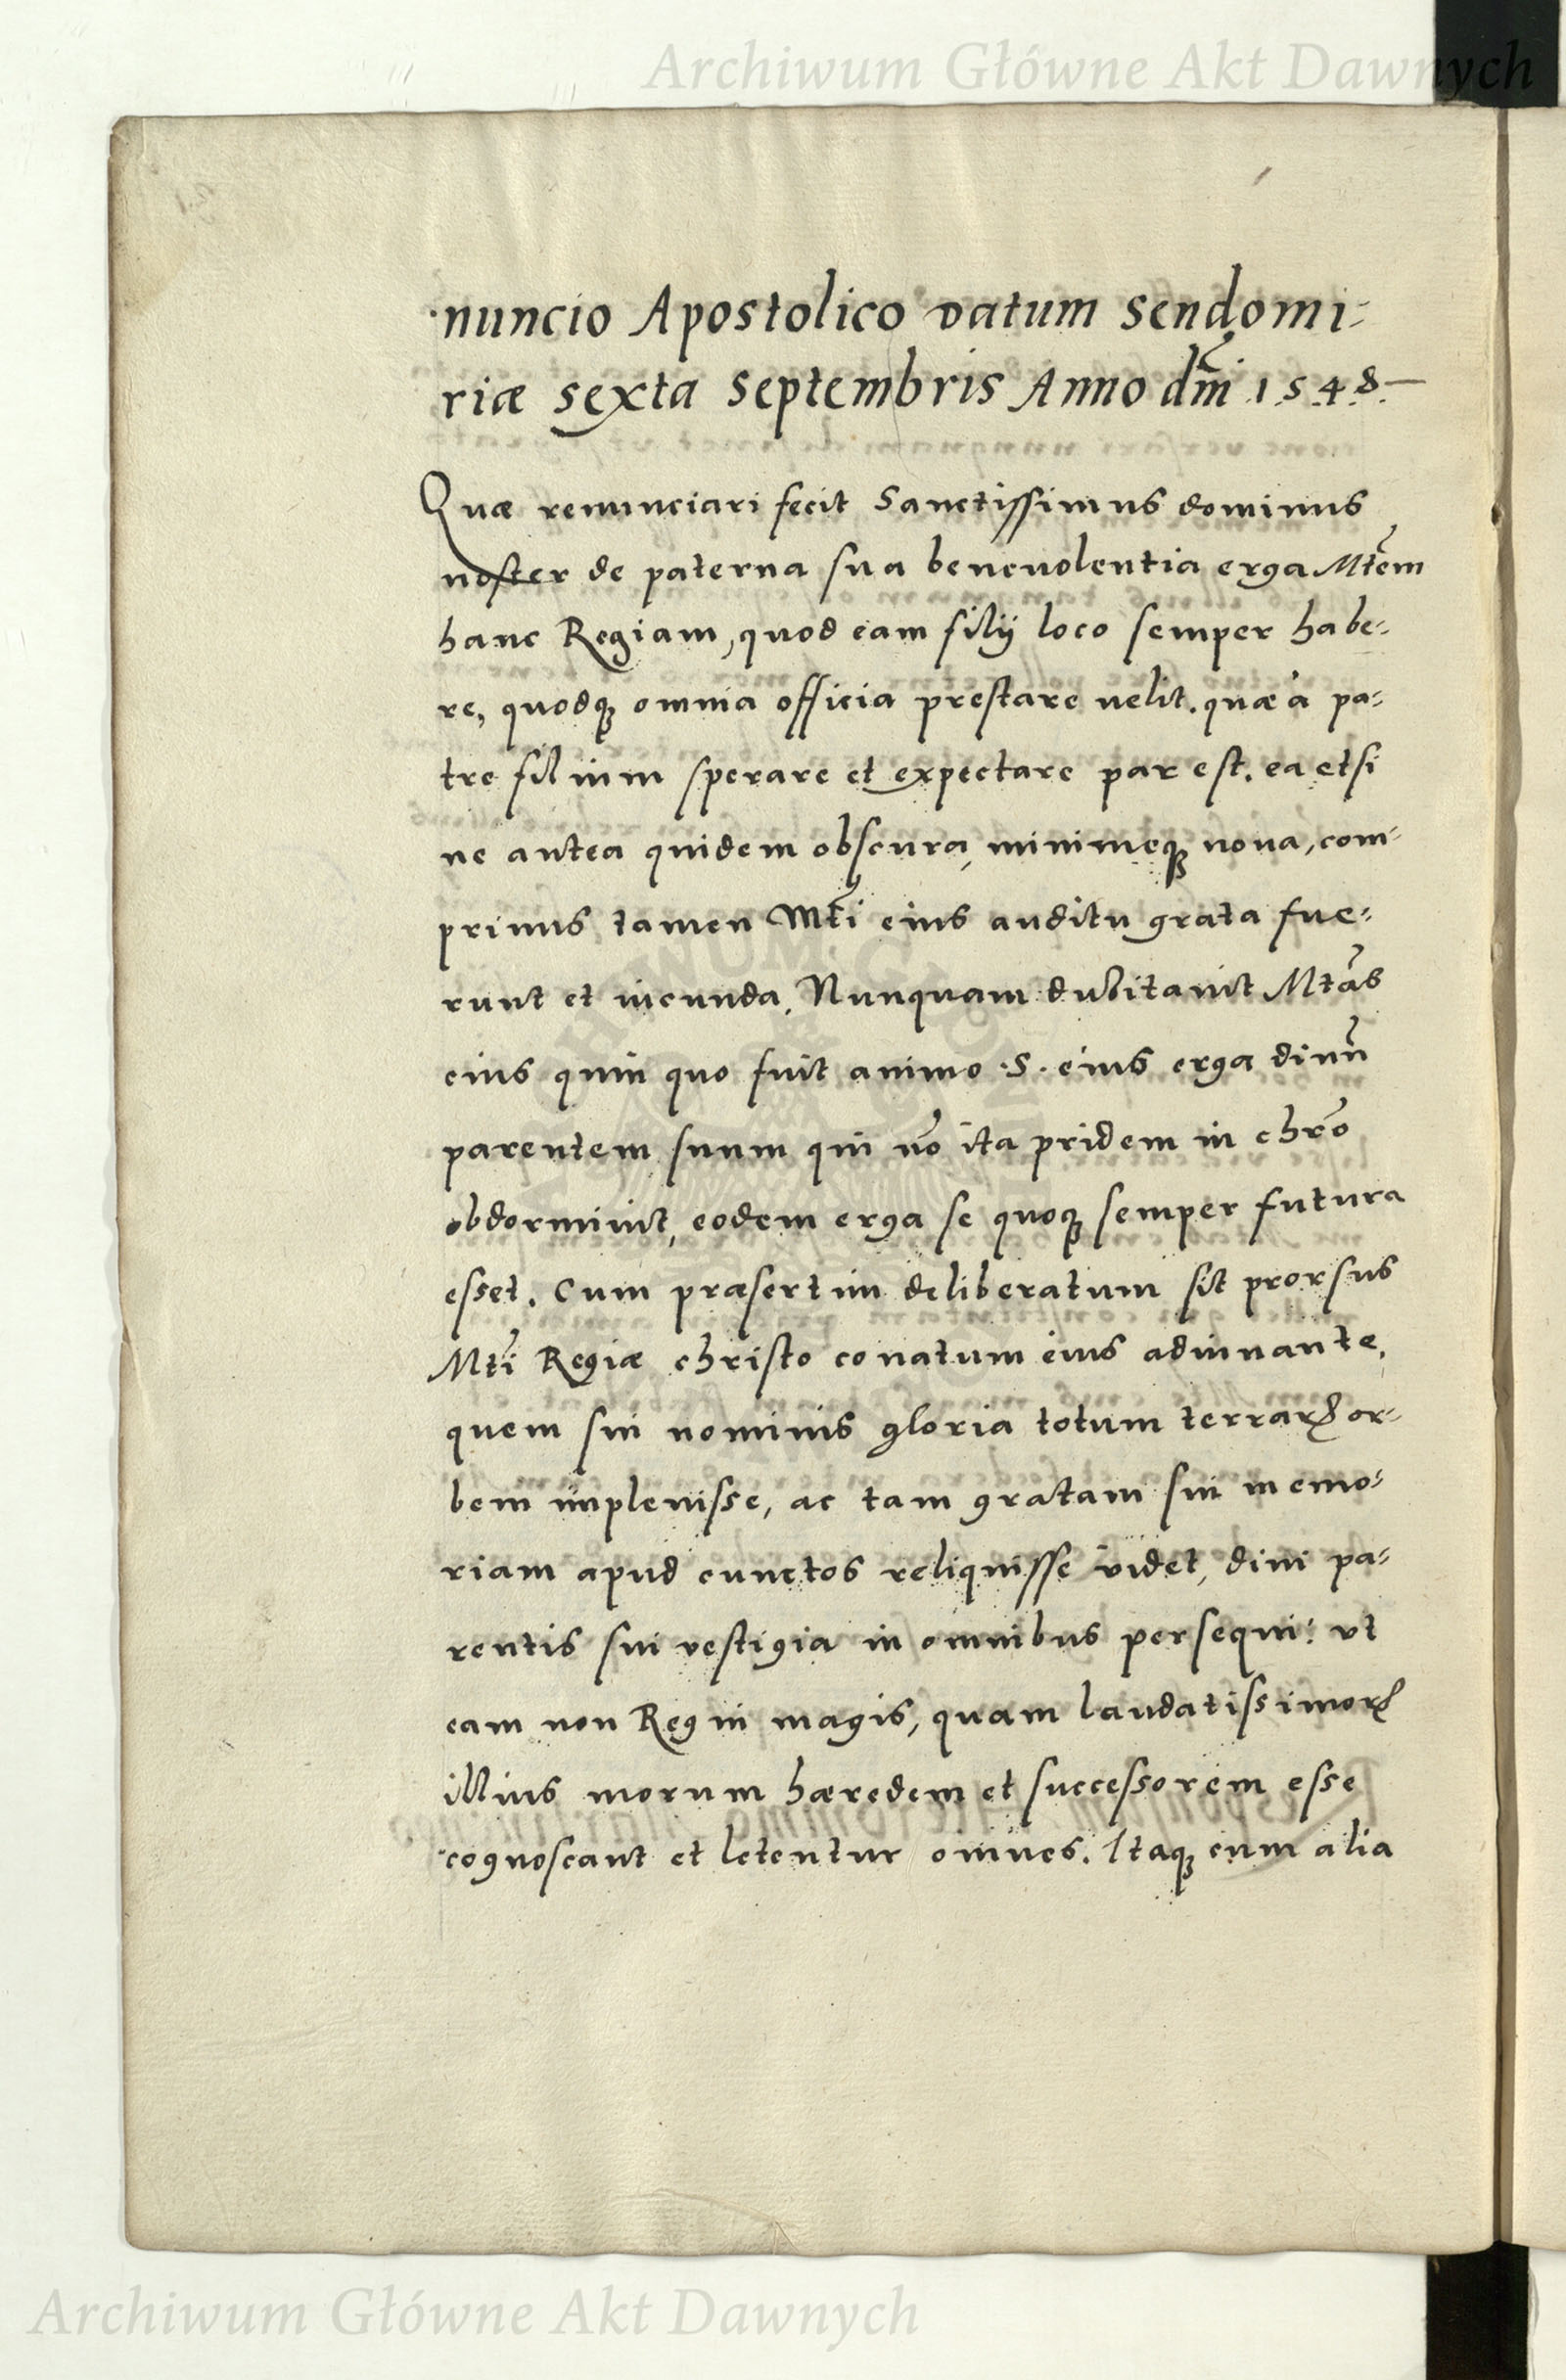 Archiwum Główne Akt Dawnych
nuncio Apostolico datum Sendomi-
riæ sexta Septembris Anno dñi 1548
Quæ renunciari fecit Sanctissimus dominus
noster de paterna sua beneuolentia erga Mtem
hanc Regiam, quod eam filij loco semper habe-
re, quodq omnia officia prestare uelit. quæ à pa-
tre filium sperare et expectare par est. ea etsi
ne antea quidem obscura, minimeq noua, com-
primis tamen Mti eius auditu grata fue-
runt et iucunda. Nunquam dubitauit Mtas
eius quin quo fuit animo .S. eius erga diuũ
parentem suum qui nõ ita pridem in chrõ
obdormiuit, eodem erga se quoq semper futura
esset. Cum præsertim deliberatum sit prorsus
Mti Regiæ christo conatum eius adiuuante,
quem sui nominis gloria totum terrarꝝ or-
bem impleuisse, ac tam gratam sui memo-
riam apud cunctos reliquisse videt, diui pa-
rentis sui vestigia in omnibus persequi: vt
eam non Regni magis, quam laudatissimorꝝ
illius morum hæredem et successorem esse
cognoscant et letentur omnes. Itaq cum alia
Archiwum Główne Akt Dawnych